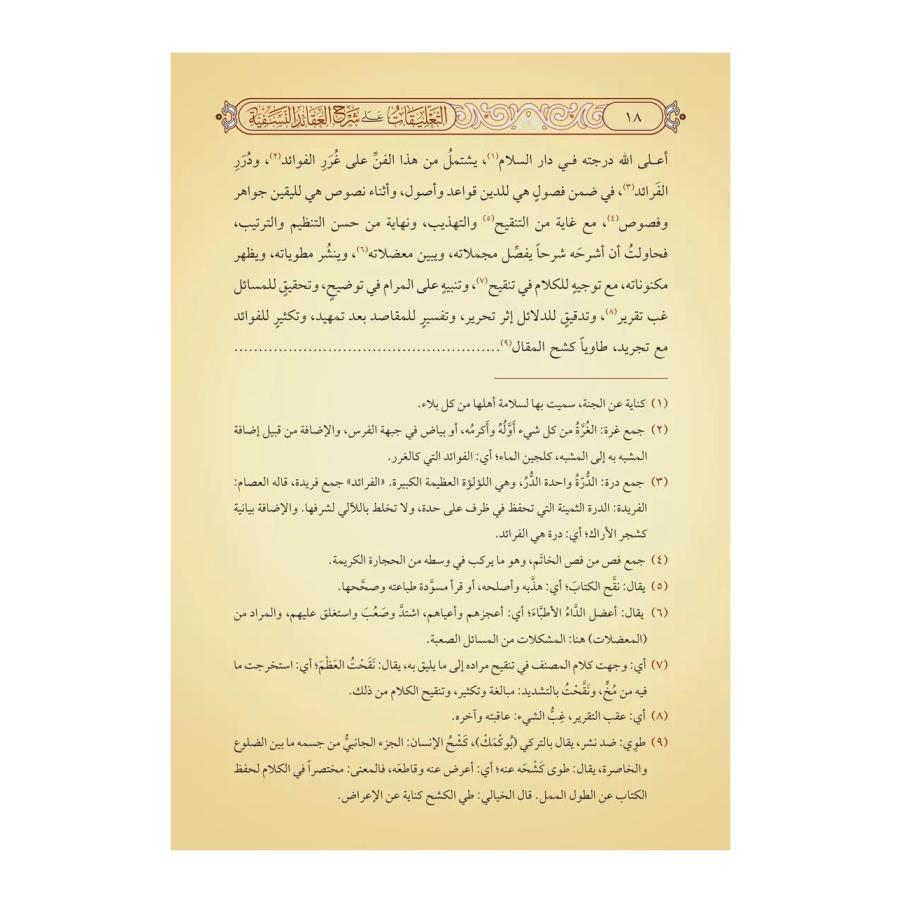 ١٨ التعليقات على شرح العقائد النسفية
أعلى الله درجته في دار السلام(١)، يشتملُ من هذا الفنِّ على غُرَرِ الفوائد(٢)، ودُرَرِ
الفَرائد(٣)، في ضمن فصولٍ هي للدين قواعد وأصول، وأثناء نصوص هي لليقين جواهر
وفصوص(٤)، مع غاية من التنقيح(٥) والتهذيب، ونهاية من حسن التنظيم والترتيب،
فحاولتُ أن أشرحَه شرحاً يفصِّل مجملاته، ويبين معضلاته(٦)، وينشُر مطوياته، ويظهر
مكنوناته، مع توجيهٍ للكلام في تنقيح(٧)، وتنبيهٍ على المرام في توضيحٍ، وتحقيقٍ للمسائل
غب تقرير(٨)، وتدقيقٍ للدلائل إثر تحرير، وتفسيرٍ للمقاصد بعد تمهيد، وتكثيرٍ للفوائد
مع تجريد، طاوياً كشح المقال(٩)......................................................
(١) كناية عن الجنة، سميت بها لسلامة أهلها من كل بلاء.
(٢) جمع غرة: الغُرَّةُ من كل شيء أَوَّلُهُ وأَكرمُه، أو بياض في جبهة الفرس، والإضافة من قبيل إضافة
المشبه به إلى المشبه، كلجين الماء؛ أي: الفوائد التي كالغرر.
(٣) جمع درة: الدُّرّةُ واحدة الدُّرِّ، وهي اللؤلؤة العظيمة الكبيرة. «الفرائد» جمع فريدة، قاله العصام:
الفريدة: الدرة الثمينة التي تحفظ في ظرف على حدة، ولا تخلط باللآلي لشرفها. والإضافة بيانية
كشجر الأراك؛ أي: درة هي الفرائد.
(٤) جمع فص من فص الخاتَم، وهو ما يركب في وسطه من الحجارة الكريمة.
(٥) يقال: نقَّح الكتابَ؛ أي: هذَّبه وأصلحه، أو قرأ مسوَّدة طباعته وصحَّحها.
(٦) يقال: أعضل الدَّاءُ الأطبَّاءَ؛ أي: أعجزهم وأعياهم، اشتدَّ وصَعُبَ واستغلق عليهم، والمراد من
(المعضلات) هنا: المشكلات من المسائل الصعبة.
(٧) أي: وجهت كلام المصنف في تنقيح مراده إلى ما يليق به، يقال: نَقَحْتُ العَظْمَ؛ أي: استخرجت ما
فيه من مُخٍّ، ونَقَّحْتُ بالتشديد: مبالغة وتكثير، وتنقيح الكلام من ذلك.
(٨) أي: عقب التقرير، غِبُّ الشيء: عاقبته وآخره.
(٩) طوِي: ضد نشر، يقال بالتركي (بُوكْمَكْ)، كَشْحُ الإنسان: الجزء الجانبيُّ من جسمه ما بين الضلوع
والخاصرة، يقال: طوى كَشْحَه عنه؛ أي: أعرض عنه وقاطعَه، فالمعنى: مختصراً في الكلام لحفظ
الكتاب عن الطول الممل. قال الخيالي: طي الكشح كناية عن الإعراض.